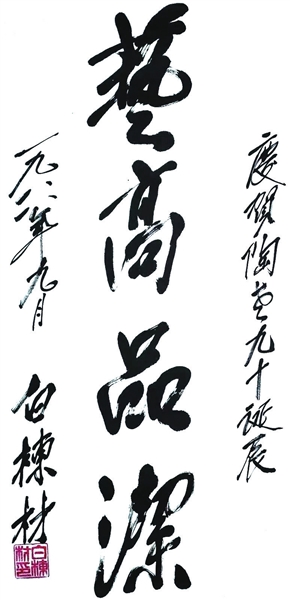 慶賀陶老九十誕辰
藝高品潔
一九八八年九月
白棟材
白棟材印